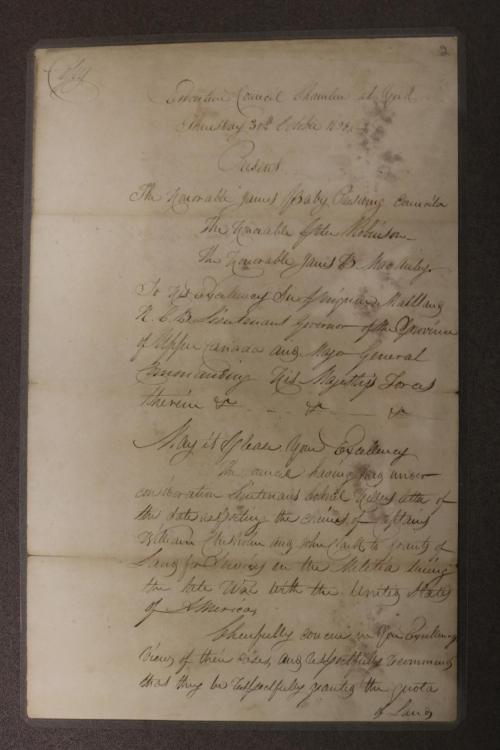 Copy
2
Executive Council Chamber at York
Thursday October
Present
The Honorable James Baby Presiding Councilor
The Honorable Peter Robinson
The Honorable James B. Macaulay
To His Excellency Sir Peregrine Maitland
K.C.B. Lieutenant Governor of the Province
of Upper Canada and Major General
Commanding His Majesty's Forces
therein &c - - &c - &c
May it please Your Excellency
The Council having had under
consideration Lieutenant Colonel letter of
this date respecting the claims of Captains
William and John to grants of
Land for Services in the Militia during
the late War with the United States
of America,
Cheerfully concur in Your Excellency
views of their cases, and respectfully recommend
that they be respectfully granted the quota
of Land